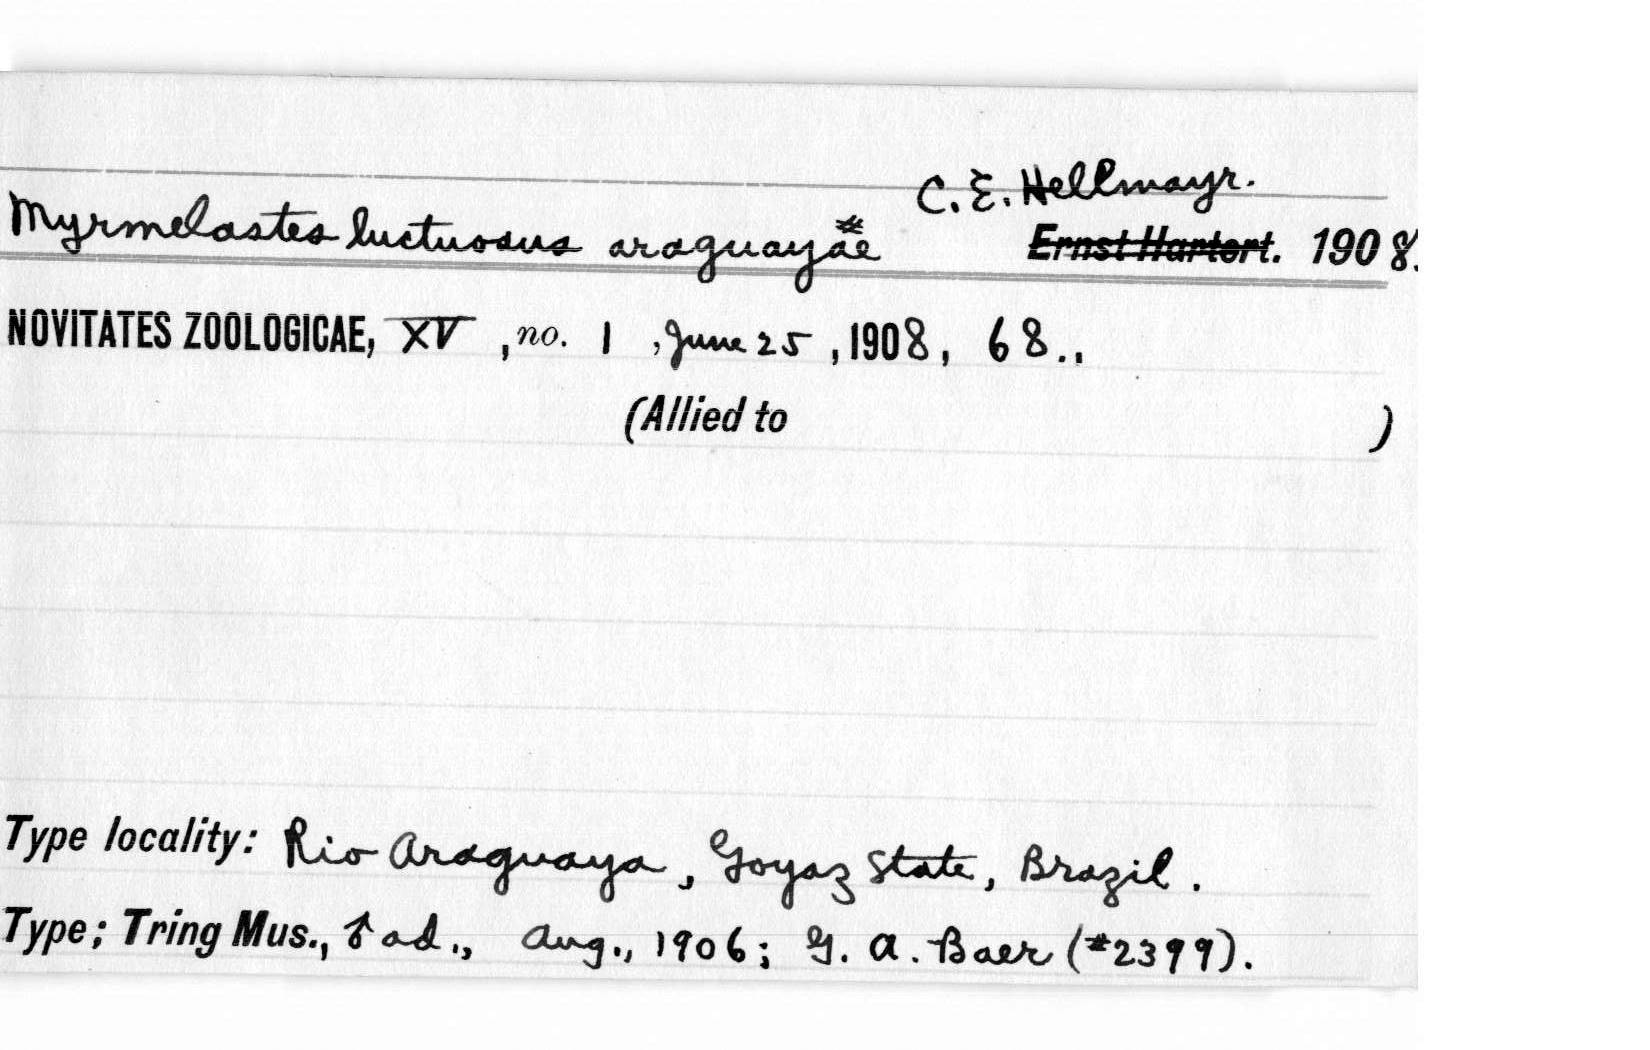 C. E. Hellmayr.
Myrmelastes luctuosus araguayae Ernst Hartert. 1908.
NOVITATES ZOOLOGICAE, XV, no. 1, June 25, 1908, 68..
(Allied to )
Type locality: Rio Araguaya, Goyaz State, Brazil.
Type; Tring Mus., ♂ ad., Aug., 1906; G. A. Baer (#2399).